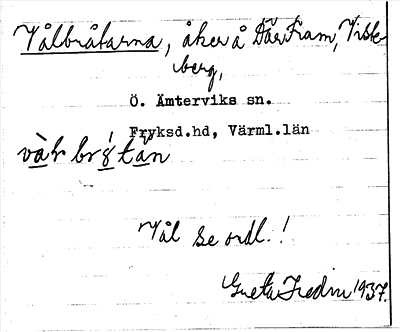 Vålbråtarna, åker å Där Fram, Visteberg,
Ö. Ämterviks sn.
Fryksd.hd, Värml.län
Vål se ordl. !
Greta Fredin 1937.